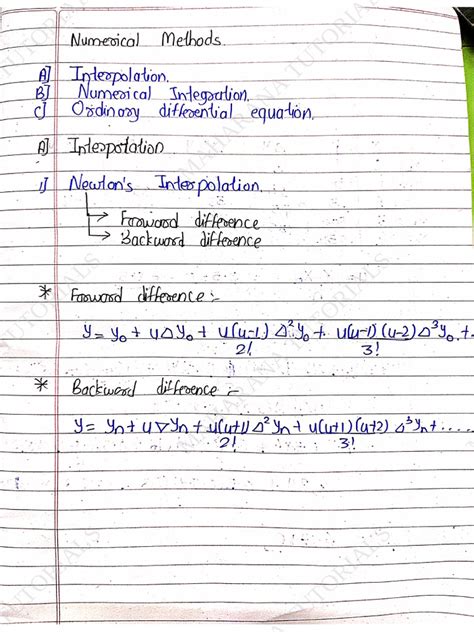 Numerical Methods.
A] Interpolation.
B] Numerical Integration.
C] Ordinary differential equation.
A] Interpolation
1] Newton's Interpolation.
→ Forward difference
→ Backward difference
* Forward difference :-
y = y₀ + uΔy₀ + u(u-1)/2! Δ²y₀ + u(u-1)(u-2)/3! Δ³y₀ + .
* Backward difference :-
y = yₙ + u∇yₙ + u(u+1)/2! Δ²yₙ + u(u+1)(u+2)/3! Δ³yₙ + .....
MAHARANA TUTORIALS